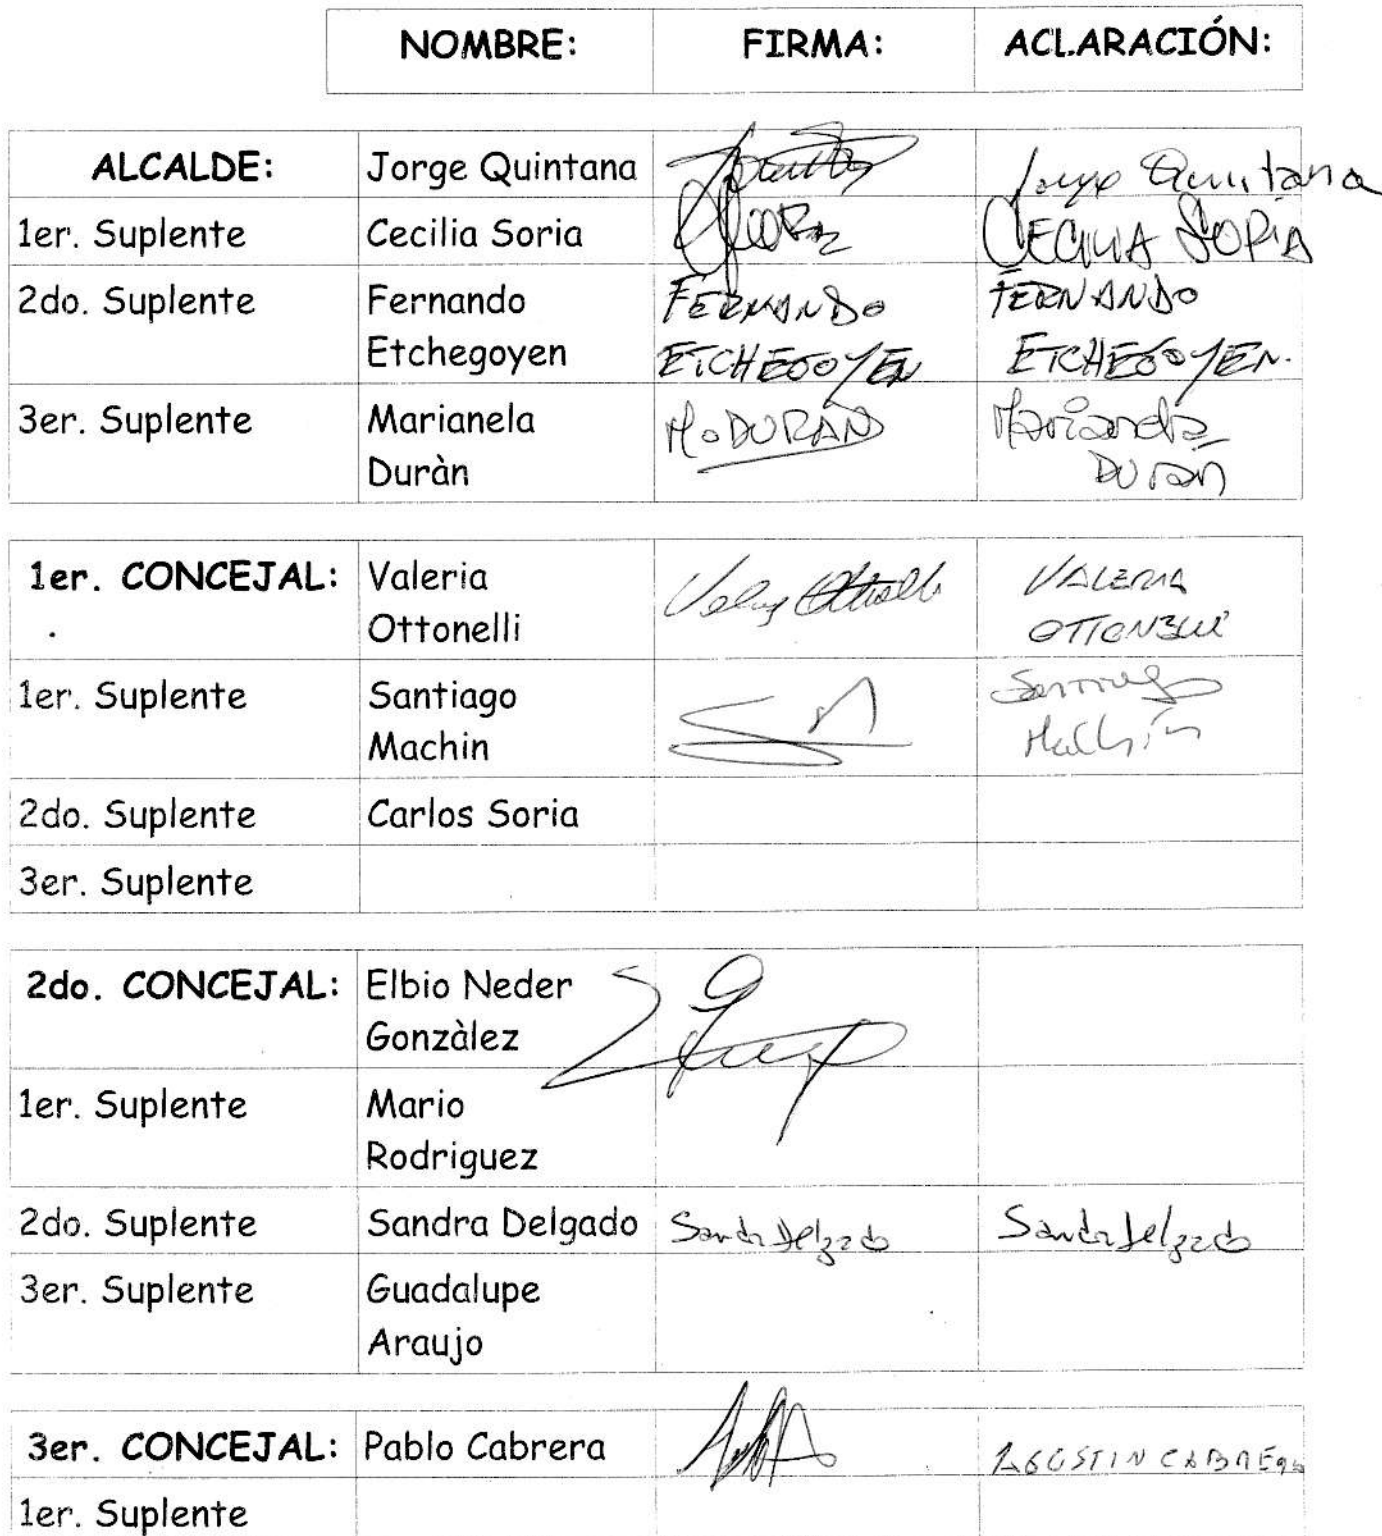 NOMBRE: FIRMA: ACLARACIÓN:
ALCALDE: Jorge Quintana Jorge Quintana
1er. Suplente Cecilia Soria CECILIA SORIA
2do. Suplente Fernando FERNANDO FERNANDO
Etchegoyen ETCHEGOYEN ETCHEGOYEN.
3er. Suplente Marianela M. DURÁN Marianela
Duràn DURÁN
1er. CONCEJAL: Valeria Valeria Ottonelli VALERIA
Ottonelli OTTONELLI
1er. Suplente Santiago Santiago
Machin Machín
2do. Suplente Carlos Soria
3er. Suplente
2do. CONCEJAL: Elbio Neder
Gonzàlez
1er. Suplente Mario
Rodriguez
2do. Suplente Sandra Delgado Sandra Delgado Sandra Delgado
3er. Suplente Guadalupe
Araujo
3er. CONCEJAL: Pablo Cabrera AGUSTIN CABRERA
1er. Suplente